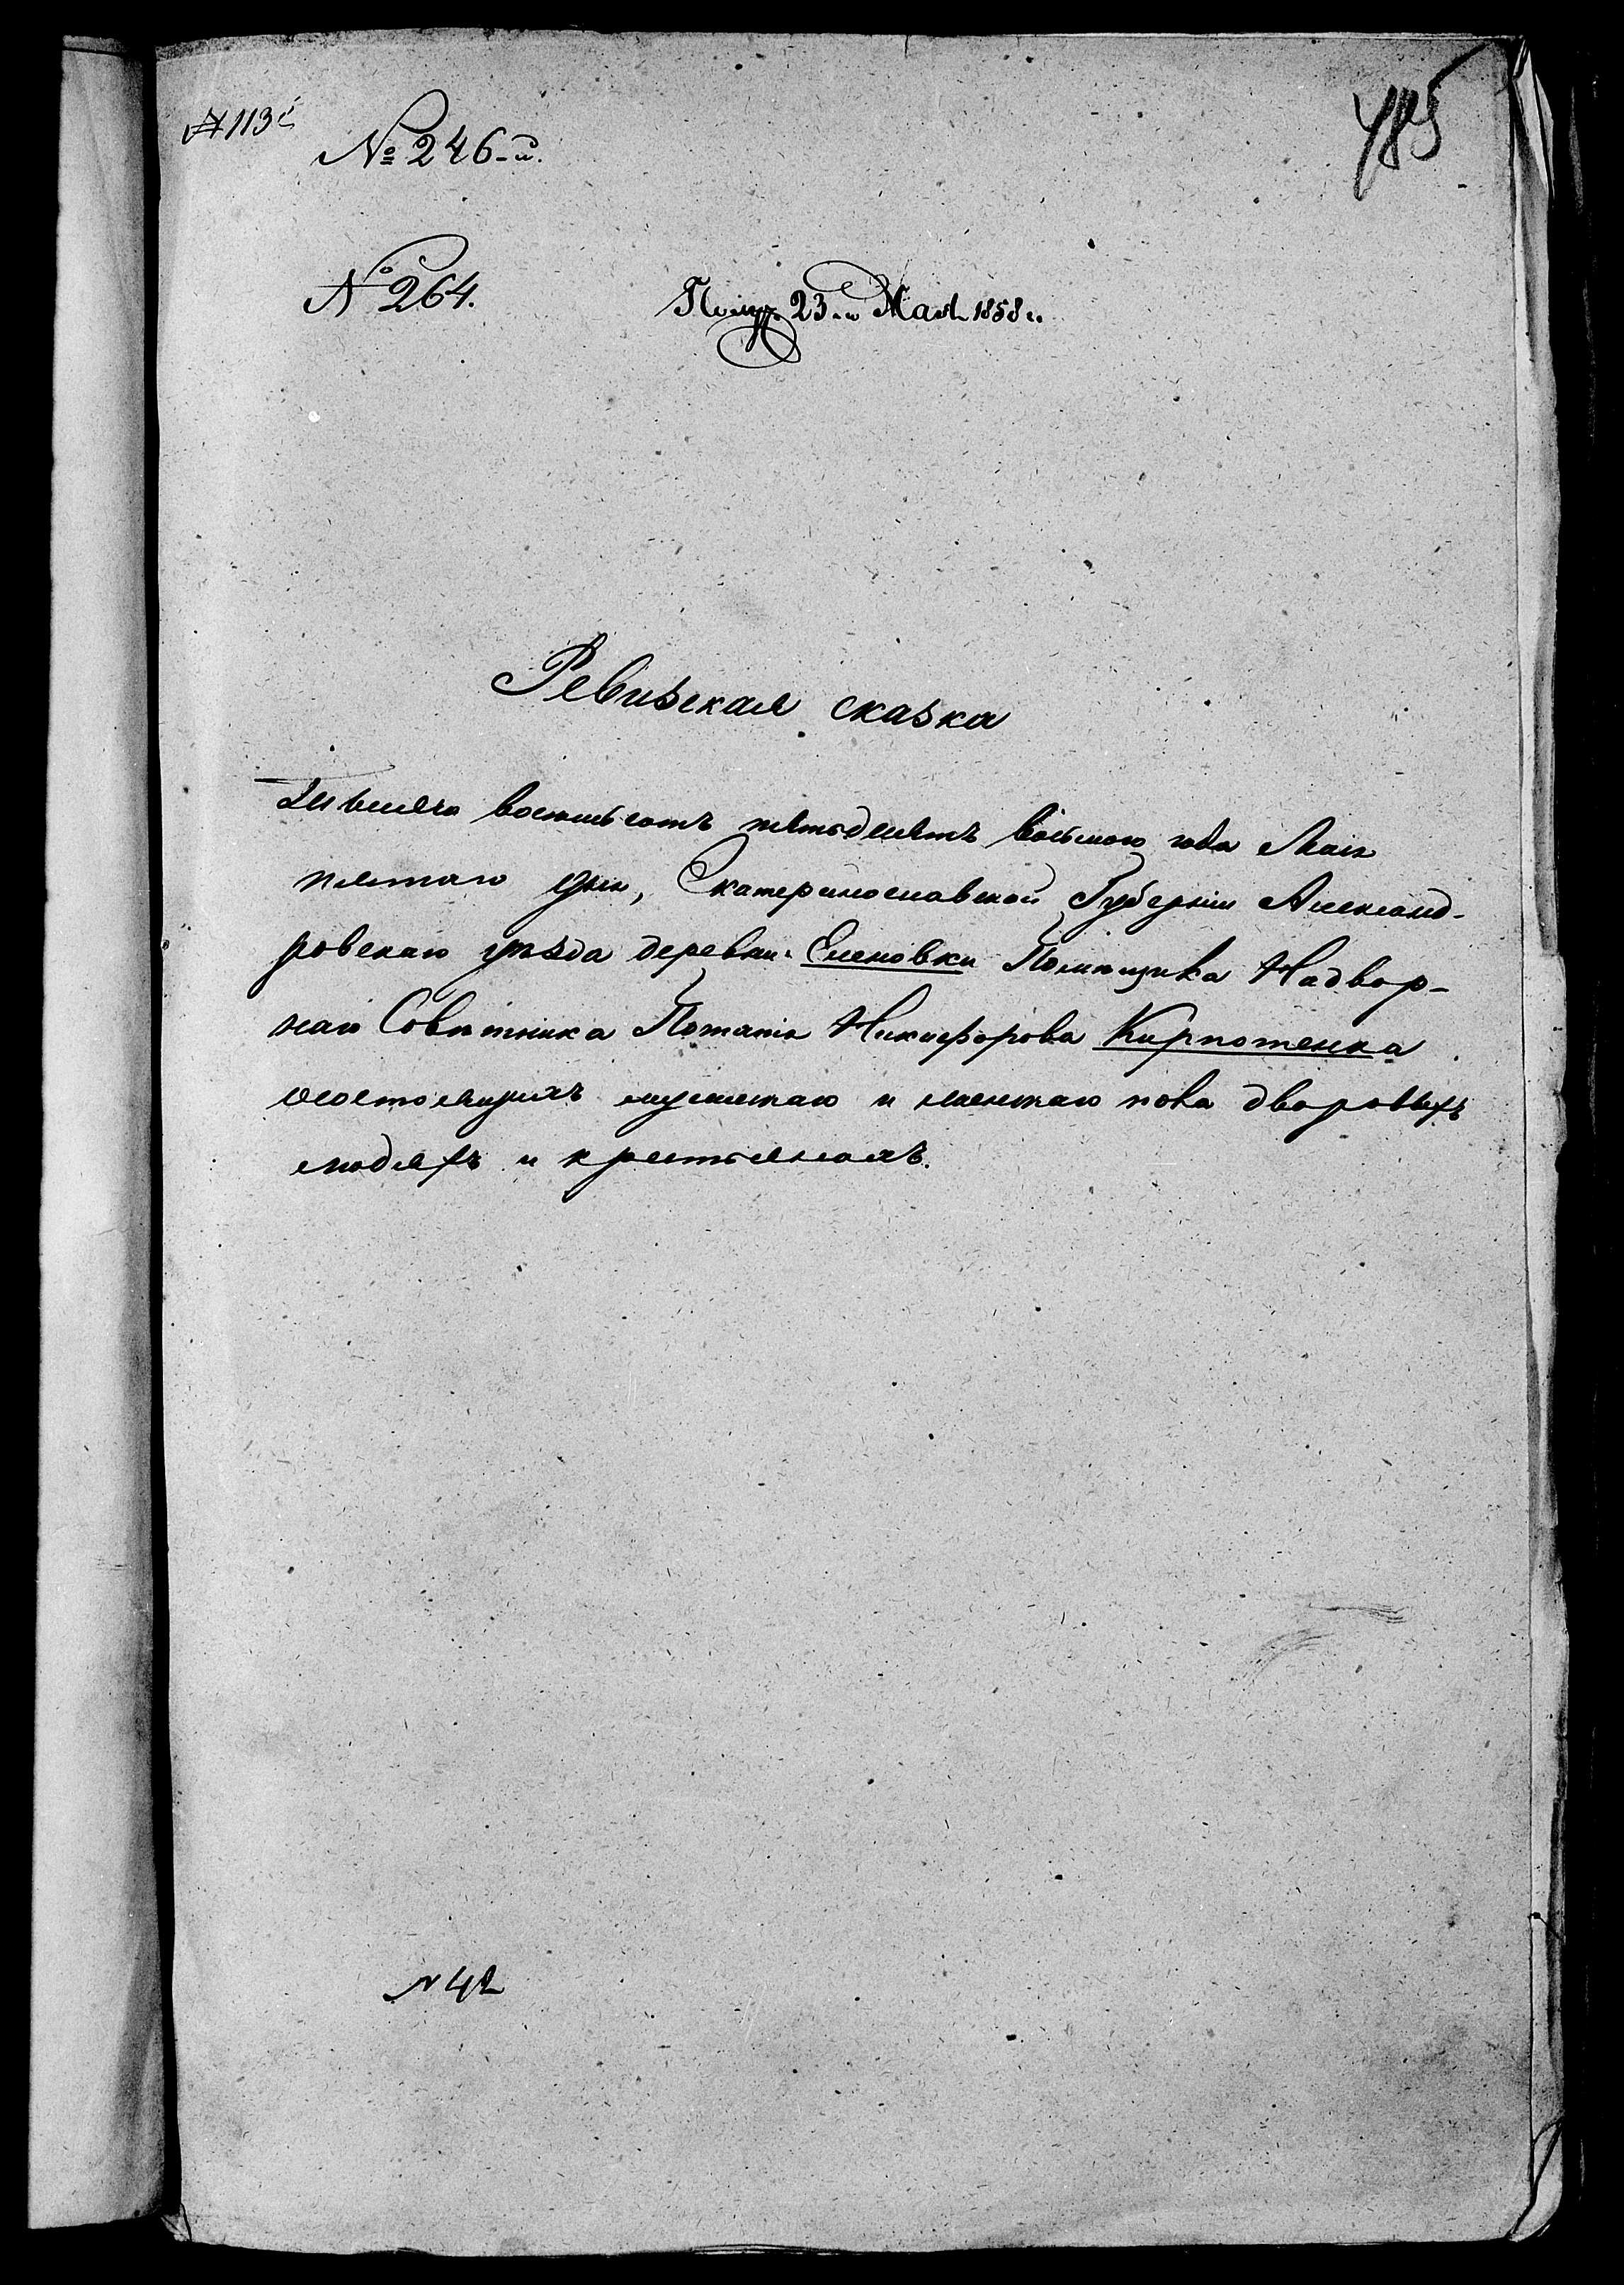 № 246-й.
485
№ 264.
Получ. 23-го Мая 1858 г.
Ревизская сказка
Тысяча восемьсотъ пятьдесятъ восьмаго года Мая
пятаго дня, Екатеринославской Губерніи Александ-
ровскаго уѣзда деревни Еленовки Помѣщика Надвор-
наго Совѣтника Потапа Никифорова Кирпотенка
состоящихъ мужескаго и женскаго пола дворовыхъ
людяхъ и крестьянахъ.
№ 42